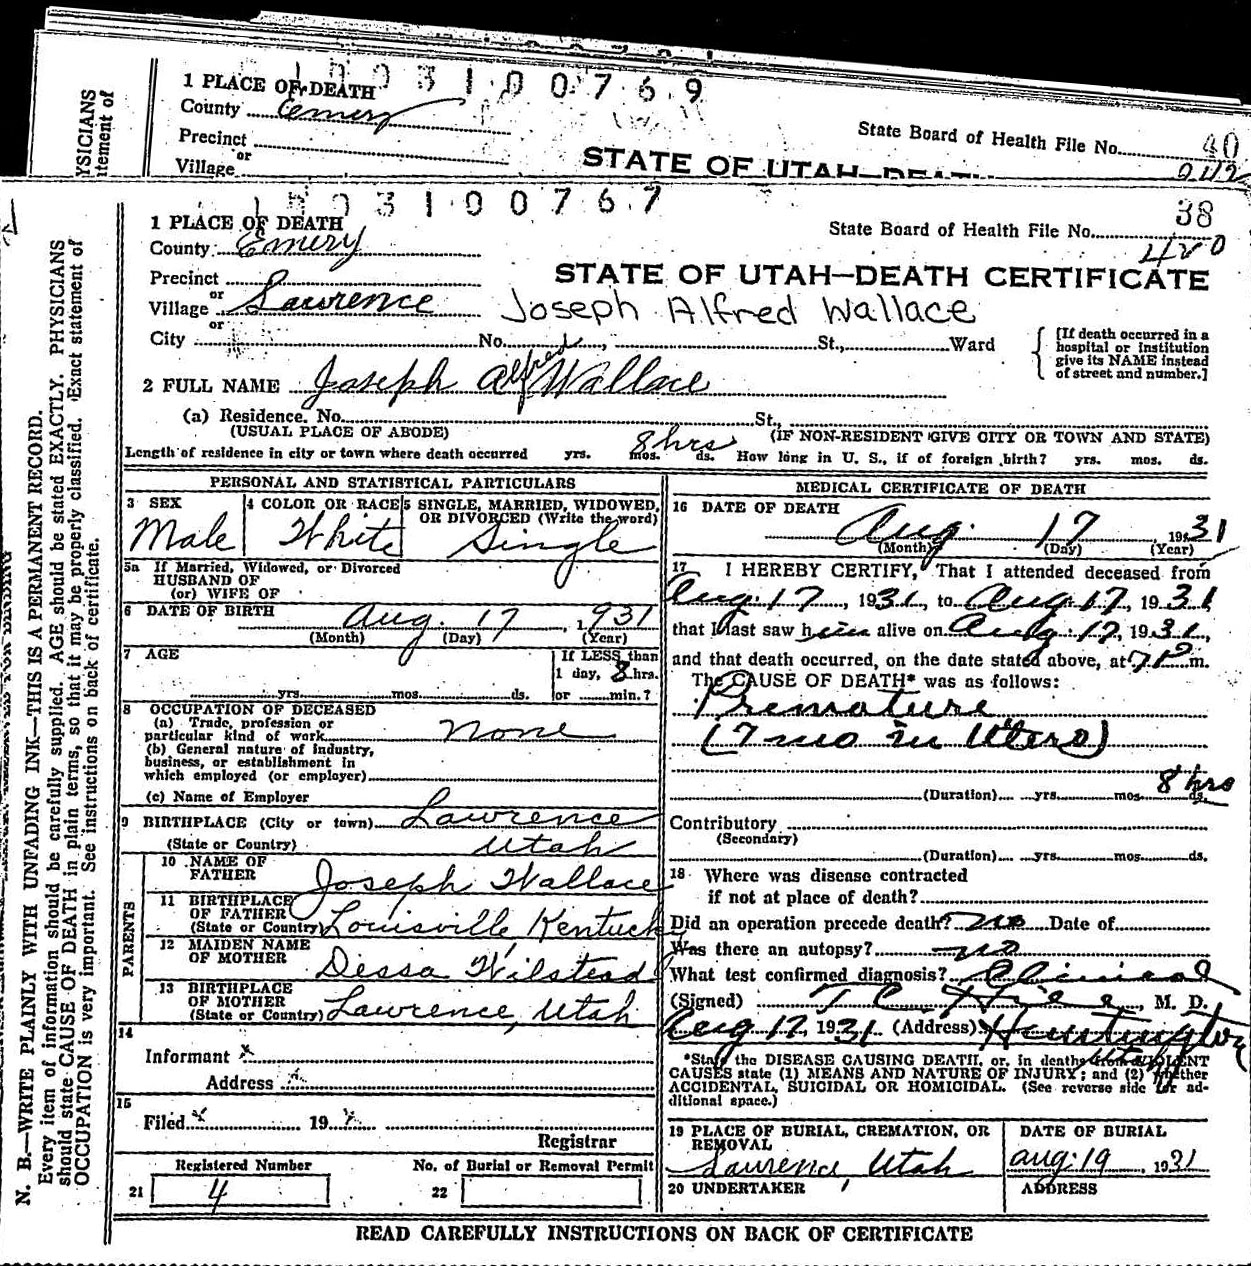 1 PLACE OF DEATH
1003100769
County Emery
State Board of Health File No. 40
Precinct
or
Village
STATE OF UTAH—DEATH
YSICIANS
tement of
1003100767
1 PLACE OF DEATH
38
County Emery
State Board of Health File No.
420
Precinct
STATE OF UTAH—DEATH CERTIFICATE
or
Village Lawrence
Joseph Alfred Wallace
or
City No. , St., Ward
[If death occurred in a
hospital or institution
give its NAME instead
of street and number.]
2 FULL NAME Joseph Alfred Wallace
(a) Residence. No. St.,
(USUAL PLACE OF ABODE) (IF NON-RESIDENT GIVE CITY OR TOWN AND STATE)
8 hrs
Length of residence in city or town where death occurred yrs. mos. ds. How long in U. S., if of foreign birth? yrs. mos. ds.
PERSONAL AND STATISTICAL PARTICULARS
3 SEX
Male
4 COLOR OR RACE
White
5 SINGLE, MARRIED, WIDOWED,
OR DIVORCED (Write the word)
Single
5a If Married, Widowed, or Divorced
HUSBAND OF
(or) WIFE OF
6 DATE OF BIRTH Aug. 17, 1931
(Month) (Day) (Year)
7 AGE
yrs. mos. ds.
If LESS than
1 day, 8 hrs.
or min.?
8 OCCUPATION OF DECEASED
(a) Trade, profession or
particular kind of work None
(b) General nature of industry,
business, or establishment in
which employed (or employer)
(c) Name of Employer
9 BIRTHPLACE (City or town) Lawrence
(State or Country) Utah
PARENTS
10 NAME OF
FATHER Joseph Wallace
11 BIRTHPLACE
OF FATHER
(State or Country) Louisville, Kentucky
12 MAIDEN NAME
OF MOTHER Dessa Wilstead
13 BIRTHPLACE
OF MOTHER
(State or Country) Lawrence, Utah
14
Informant x
Address x
15
Filed x 19 x
Registrar
Registered Number
21 4
No. of Burial or Removal Permit
22
MEDICAL CERTIFICATE OF DEATH
16 DATE OF DEATH
Aug. 17, 1931
(Month) (Day) (Year)
17 I HEREBY CERTIFY, That I attended deceased from
Aug. 17, 1931, to Aug. 17, 1931
that I last saw him alive on Aug. 17, 1931,
and that death occurred, on the date stated above, at 7 P m.
The CAUSE OF DEATH* was as follows:
Premature
(7 mo in Utero)
8 hrs
(Duration) yrs. mos. ds.
Contributory
(Secondary)
(Duration) yrs. mos. ds.
18 Where was disease contracted
if not at place of death?
Did an operation precede death? no Date of
Was there an autopsy? no
What test confirmed diagnosis? Clinical
(Signed) T C , M. D.
Aug 17, 1931 (Address) Huntington
Utah
*State the DISEASE CAUSING DEATH, or, in deaths from VIOLENT
CAUSES state (1) MEANS AND NATURE OF INJURY; and (2) whether
ACCIDENTAL, SUICIDAL OR HOMICIDAL. (See reverse side for ad-
ditional space.)
19 PLACE OF BURIAL, CREMATION, OR
REMOVAL
Lawrence, Utah
DATE OF BURIAL
Aug. 19, 1931
20 UNDERTAKER
ADDRESS
READ CAREFULLY INSTRUCTIONS ON BACK OF CERTIFICATE
N. B.—WRITE PLAINLY WITH UNFADING INK—THIS IS A PERMANENT RECORD.
Every item of information should be carefully supplied. AGE should be stated EXACTLY. PHYSICIANS
should state CAUSE OF DEATH in plain terms, so that it may be properly classified. Exact statement of
OCCUPATION is very important. See instructions on back of certificate.